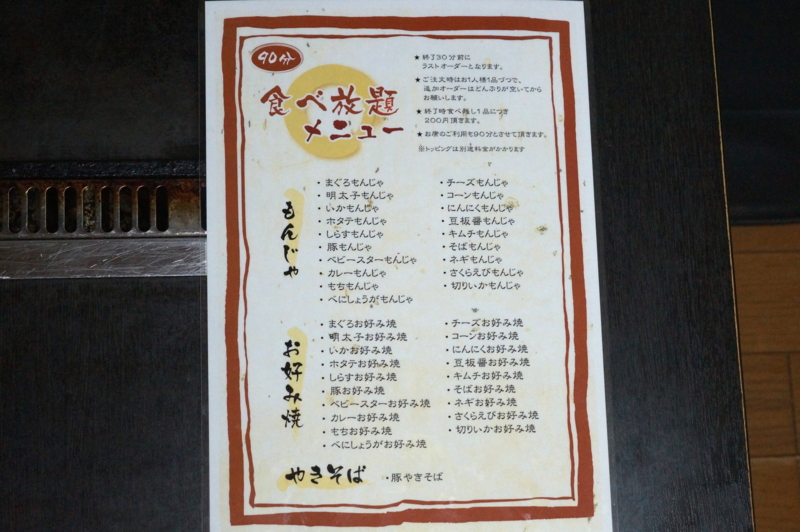 90分
食べ放題
メニュー
★終了30分前に
ラストオーダーとなります。
★ご注文時はお1人様1品づつで、
追加オーダーはどんぶりが空いてから
お願いします。
★終了時食べ残し1品につき
200円頂きます。
★お席のご利用も90分とさせて頂きます。
※トッピングは別途料金がかかります
もんじゃ
・まぐろもんじゃ
・明太子もんじゃ
・いかもんじゃ
・ホタテもんじゃ
・しらすもんじゃ
・豚もんじゃ
・ベビースターもんじゃ
・カレーもんじゃ
・もちもんじゃ
・べにしょうがもんじゃ
・チーズもんじゃ
・コーンもんじゃ
・にんにくもんじゃ
・豆板醤もんじゃ
・キムチもんじゃ
・そばもんじゃ
・ネギもんじゃ
・さくらえびもんじゃ
・切りいかもんじゃ
お好み焼
・まぐろお好み焼
・明太子お好み焼
・いかお好み焼
・ホタテお好み焼
・しらすお好み焼
・豚お好み焼
・ベビースターお好み焼
・カレーお好み焼
・もちお好み焼
・べにしょうがお好み焼
・チーズお好み焼
・コーンお好み焼
・にんにくお好み焼
・豆板醤お好み焼
・キムチお好み焼
・そばお好み焼
・ネギお好み焼
・さくらえびお好み焼
・切りいかお好み焼
やきそば
・豚やきそば